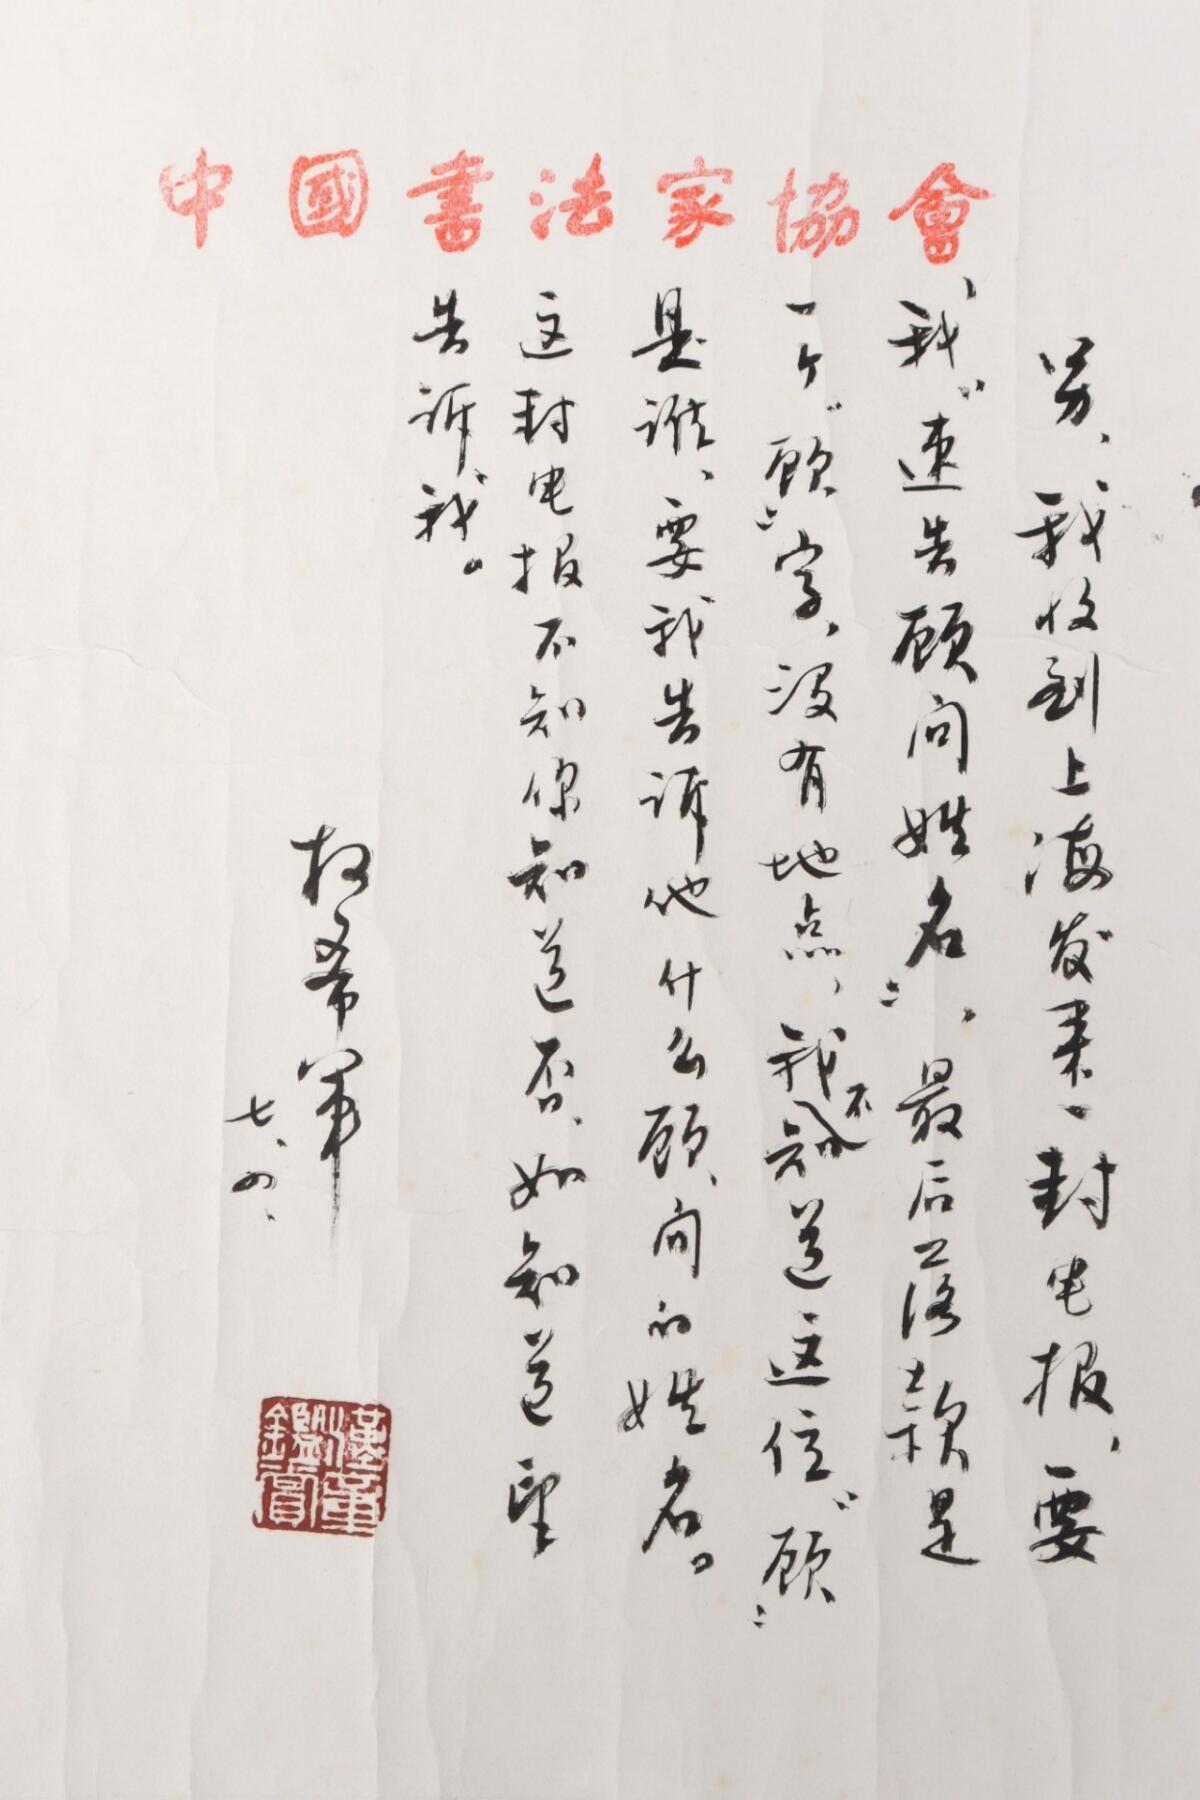 中國書法家協會
另、我收到上海发来一封电报，要
我“速告顾问姓名”，最后落款是
一个“顾”字，没有地点，我不知道这位“顾”
是谁，要我告诉他什么顾问的姓名。
这封电报不知你知道否，如知道望
告诉我。
权希军
七、四、
漢軍鑑賞